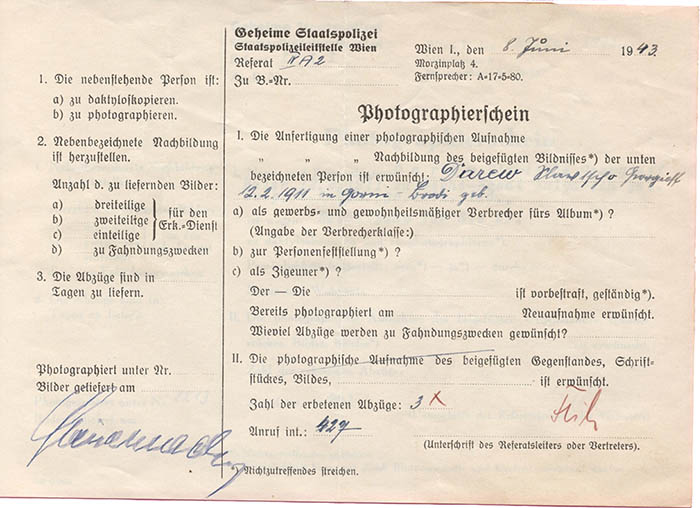 Geheime Staatspolizei
Staatspolizeileitstelle Wien
Referat IV A 2
Zu B.-Nr.
Wien I., den 8. Juni 1943
Morzinplatz 4.
Fernsprecher: A=17=5=80.
1. Die nebenstehende Person ist:
a) zu daktyloskopieren.
b) zu photographieren.
2. Nebenbezeichnete Nachbildung
ist herzustellen.
Anzahl d. zu liefernden Bilder:
a) dreiteilige
b) zweiteilige
c) einteilige
für den
Erk.=Dienst
d) zu Fahndungszwecken
3. Die Abzüge sind in
Tagen zu liefern.
Photographiert unter Nr.
Bilder geliefert am
Photographierschein
I. Die Anfertigung einer photographischen Aufnahme
„ „ „ Nachbildung des beigefügten Bildnisses*) der unten
bezeichneten Person ist erwünscht: Darew Slawtscho Georgieff
12.2.1911 in Gorni-Brodi geb.
a) als gewerbs= und gewohnheitsmäßiger Verbrecher fürs Album*) ?
(Angabe der Verbrecherklasse:)
b) zur Personenfeststellung*) ?
c) als Zigeuner*) ?
Der — Die ist vorbestraft, geständig*).
Bereits photographiert am Neuaufnahme erwünscht.
Wieviel Abzüge werden zu Fahndungszwecken gewünscht?
II. Die photographische Aufnahme des beigefügten Gegenstandes, Schrift=
stückes, Bildes, ist erwünscht.
Zahl der erbetenen Abzüge: 3 x
Anruf int.: 429
(Unterschrift des Referatsleiters oder Vertreters).
*) Nichtzutreffendes streichen.